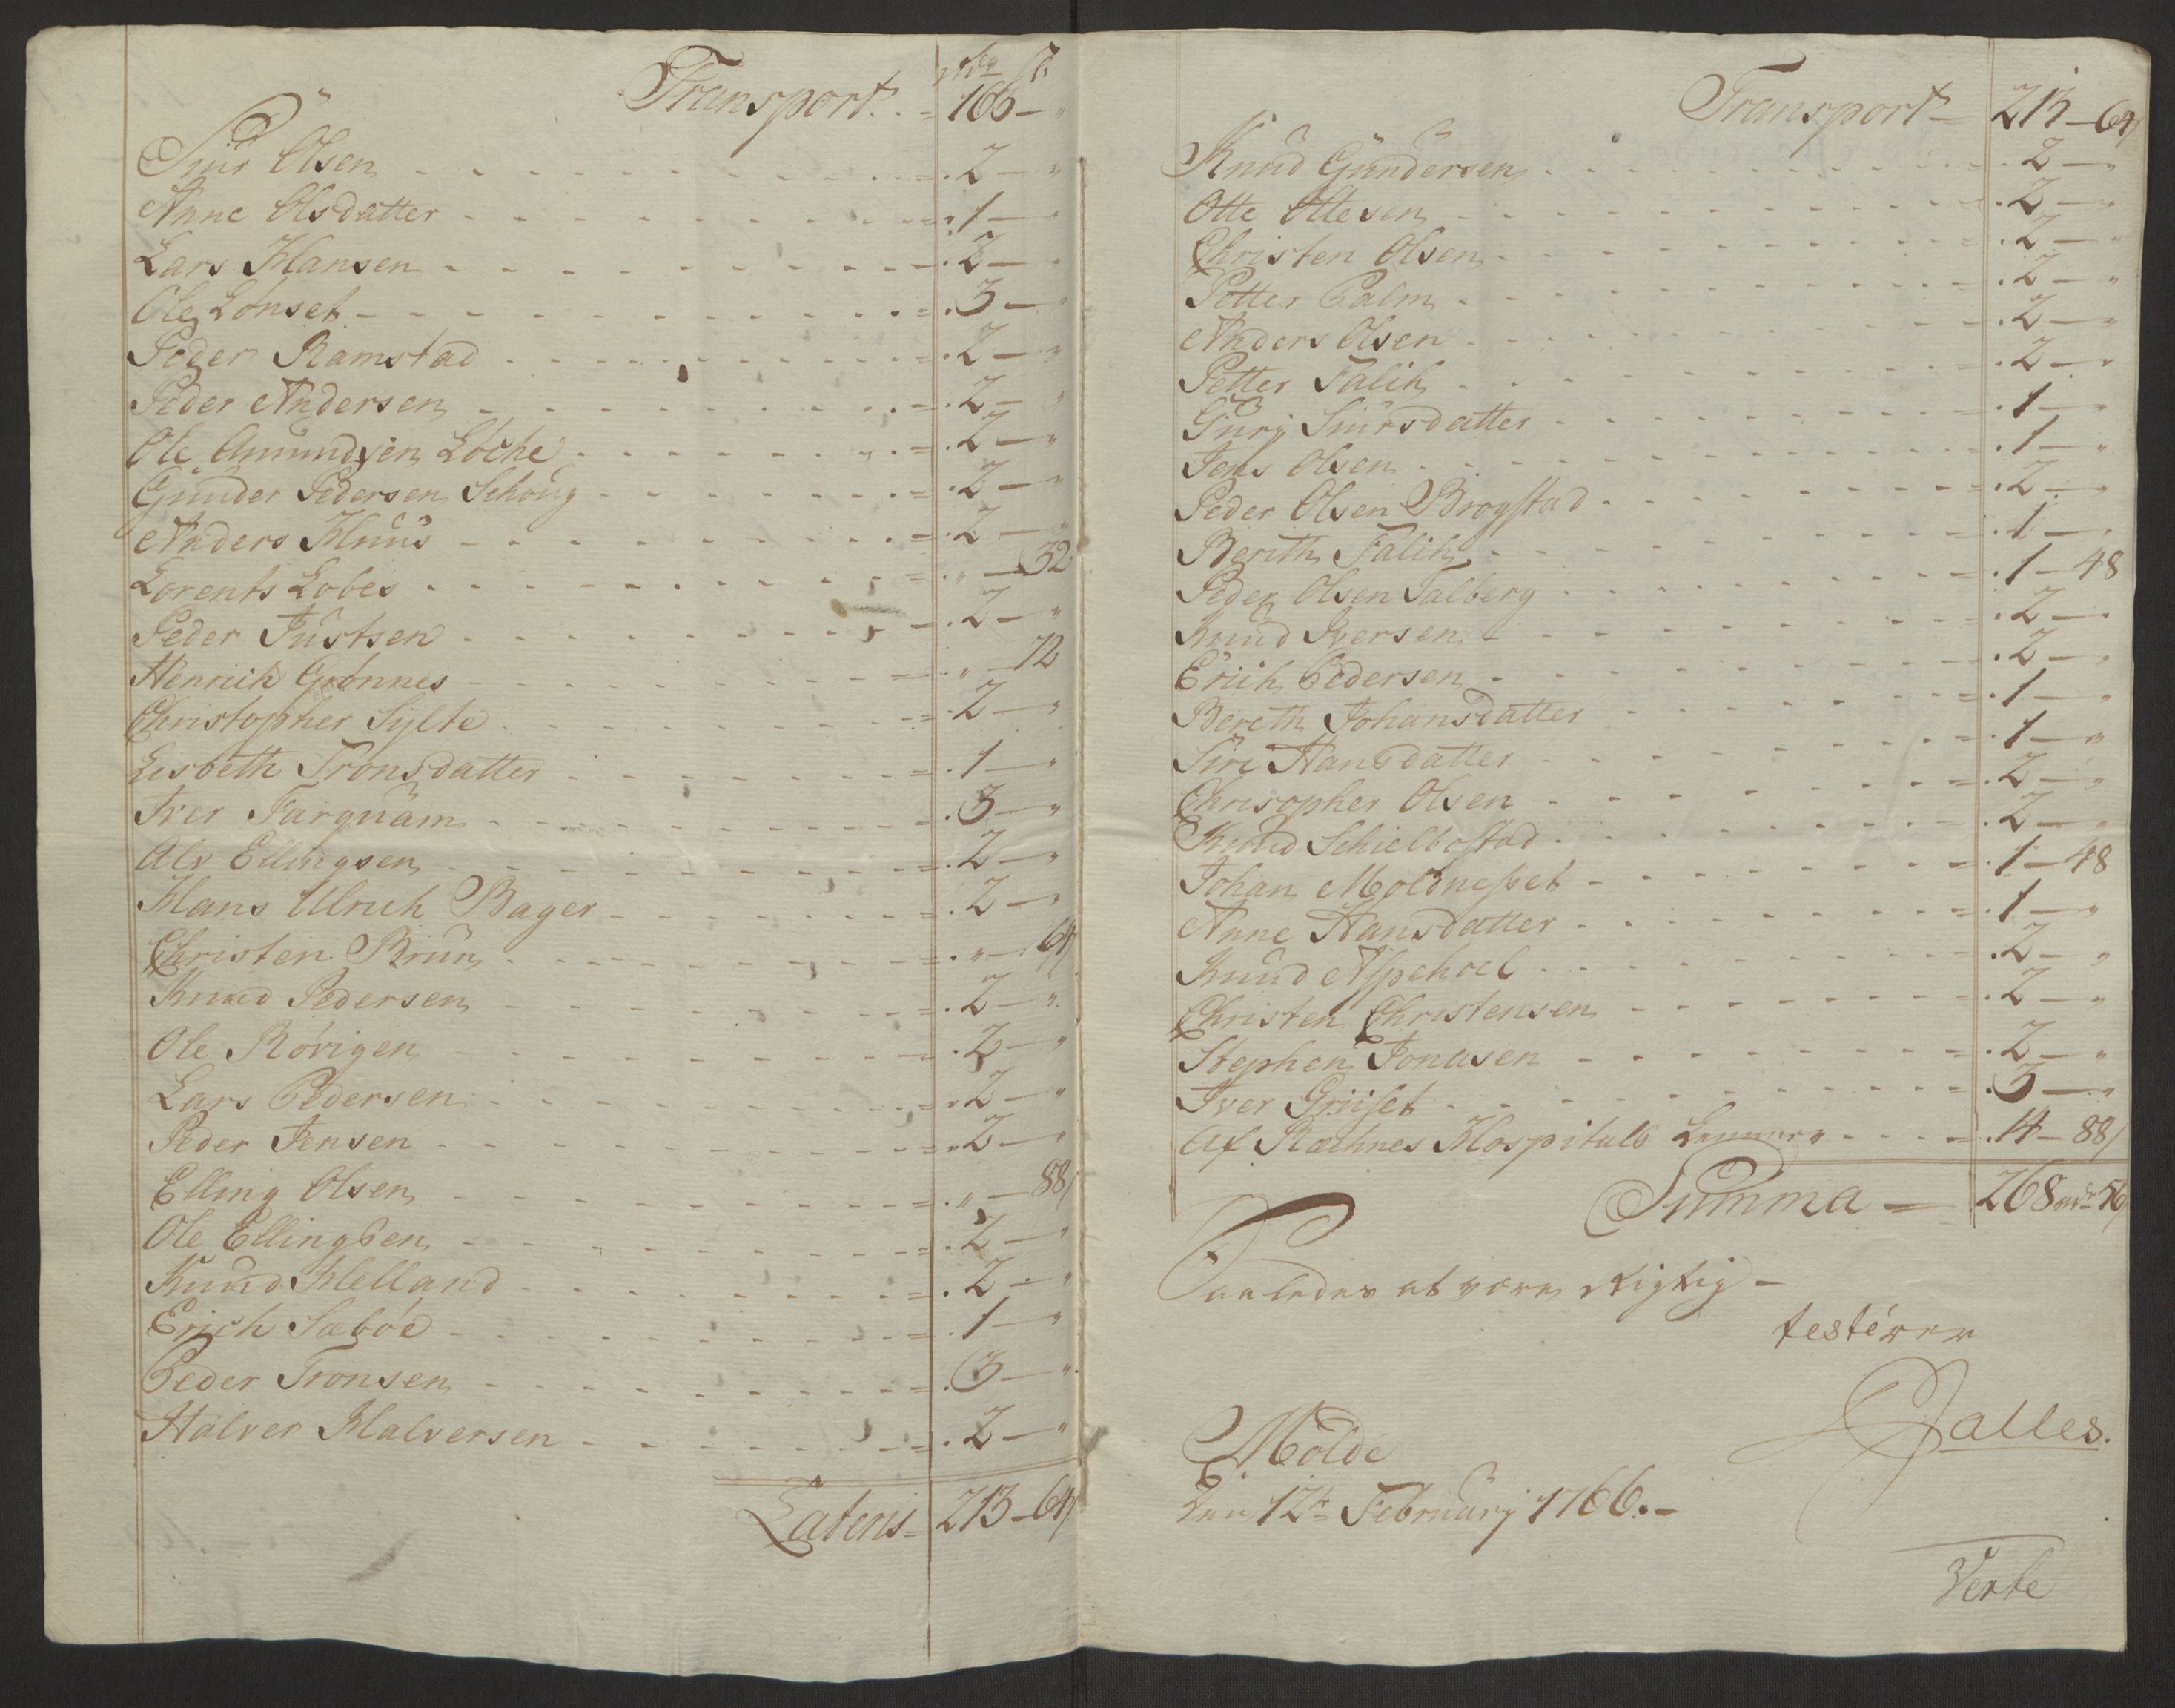 rdr ß
Transport . . = 166 — "
Siur Olsen . . . = . 2 — "
Anne Olsdatter . . . = . 1 — "
Lars Hansen . . . = . 2 — "
Ole Lönset . . . = . 3 — "
Peder Ramstad . . . = . 2 — "
Peder Andersen . . . = . 2 — "
Ole Amundsen Löche . . . = . 2 — "
Gunder Pedersen Schoug . . . = . 2 — "
Anders Huus . . . = . 2 — "
Lorents Lobes . . . = . " — 32
Peder Justsen . . . = . 2 — "
Henrich Grönnes . . . = . " — 72
Christopher Sylte . . . = . 2 — "
Lisbeth Tronsdatter . . . = . 1 — "
Iver Farquam . . . = . 3 — "
Alv Ellingsen . . . = . 2 — "
Hans Ulrich Bager . . . = . 2 — "
Christen Bruun . . . = . " — 64
Knud Pedersen . . . = . 2 — "
Ole Rövigen . . . = . 2 — "
Lars Pedersen . . . = . 2 — "
Peder Jensen . . . = . 2 — "
Elling Olsen . . . = . " — 88
Ole Ellingsen . . . = . 2 — "
Knud Helland . . . = . 2 — "
Erich Sæböe . . . = . 1 — "
Peder Tronsen . . . = . 3 — "
Halver Halversen . . . = . 2 — "
Lateris = 213 — 64
Transport = 213 — 64
Knud Gundersen . . . 2 — "
Otte Ottesen . . . = . 2 — "
Christen Olsen . . . = . 2 — "
Petter Palm . . . = . 2 — "
Anders Olsen . . . = . 2 — "
Petter Falch . . . = . 2 — "
Gury Siursdatter . . . = . 1 — "
Jens Olsen . . . = . 1 — "
Peder Olsen Brogstad . . . = . 2 — "
Berith Falch . . . = . 1 — "
Peder Olsen Talberg . . . = . 1 — 48
Knud Iversen . . . = . 2 — "
Erich Pedersen . . . = . 2 — "
Bereth Johansdatter . . . = . 1 — "
Siri Hansdatter . . . = . 1 — "
Chrisopher Olsen . . . = . 2 — "
Knud Schielbostad . . . = . 2 — "
Johan Moldnesset . . . = . 1 — 48
Anne Hansdatter . . . = . 1 — "
Knud Aspehoel . . . = . 2 — "
Christen Christensen . . . = . 2 — "
Stephen Jonasen . . . = . 2 — "
Iver Griiset . . . = . 3 — "
Af Ræchnes Hospitals Lemmer . . . = . 14 — 88
Summa = 268 rdr 56
Saaledes at være Rigtig —
testerer
Dalles.
Molde
den 12te February 1766. —
Verte